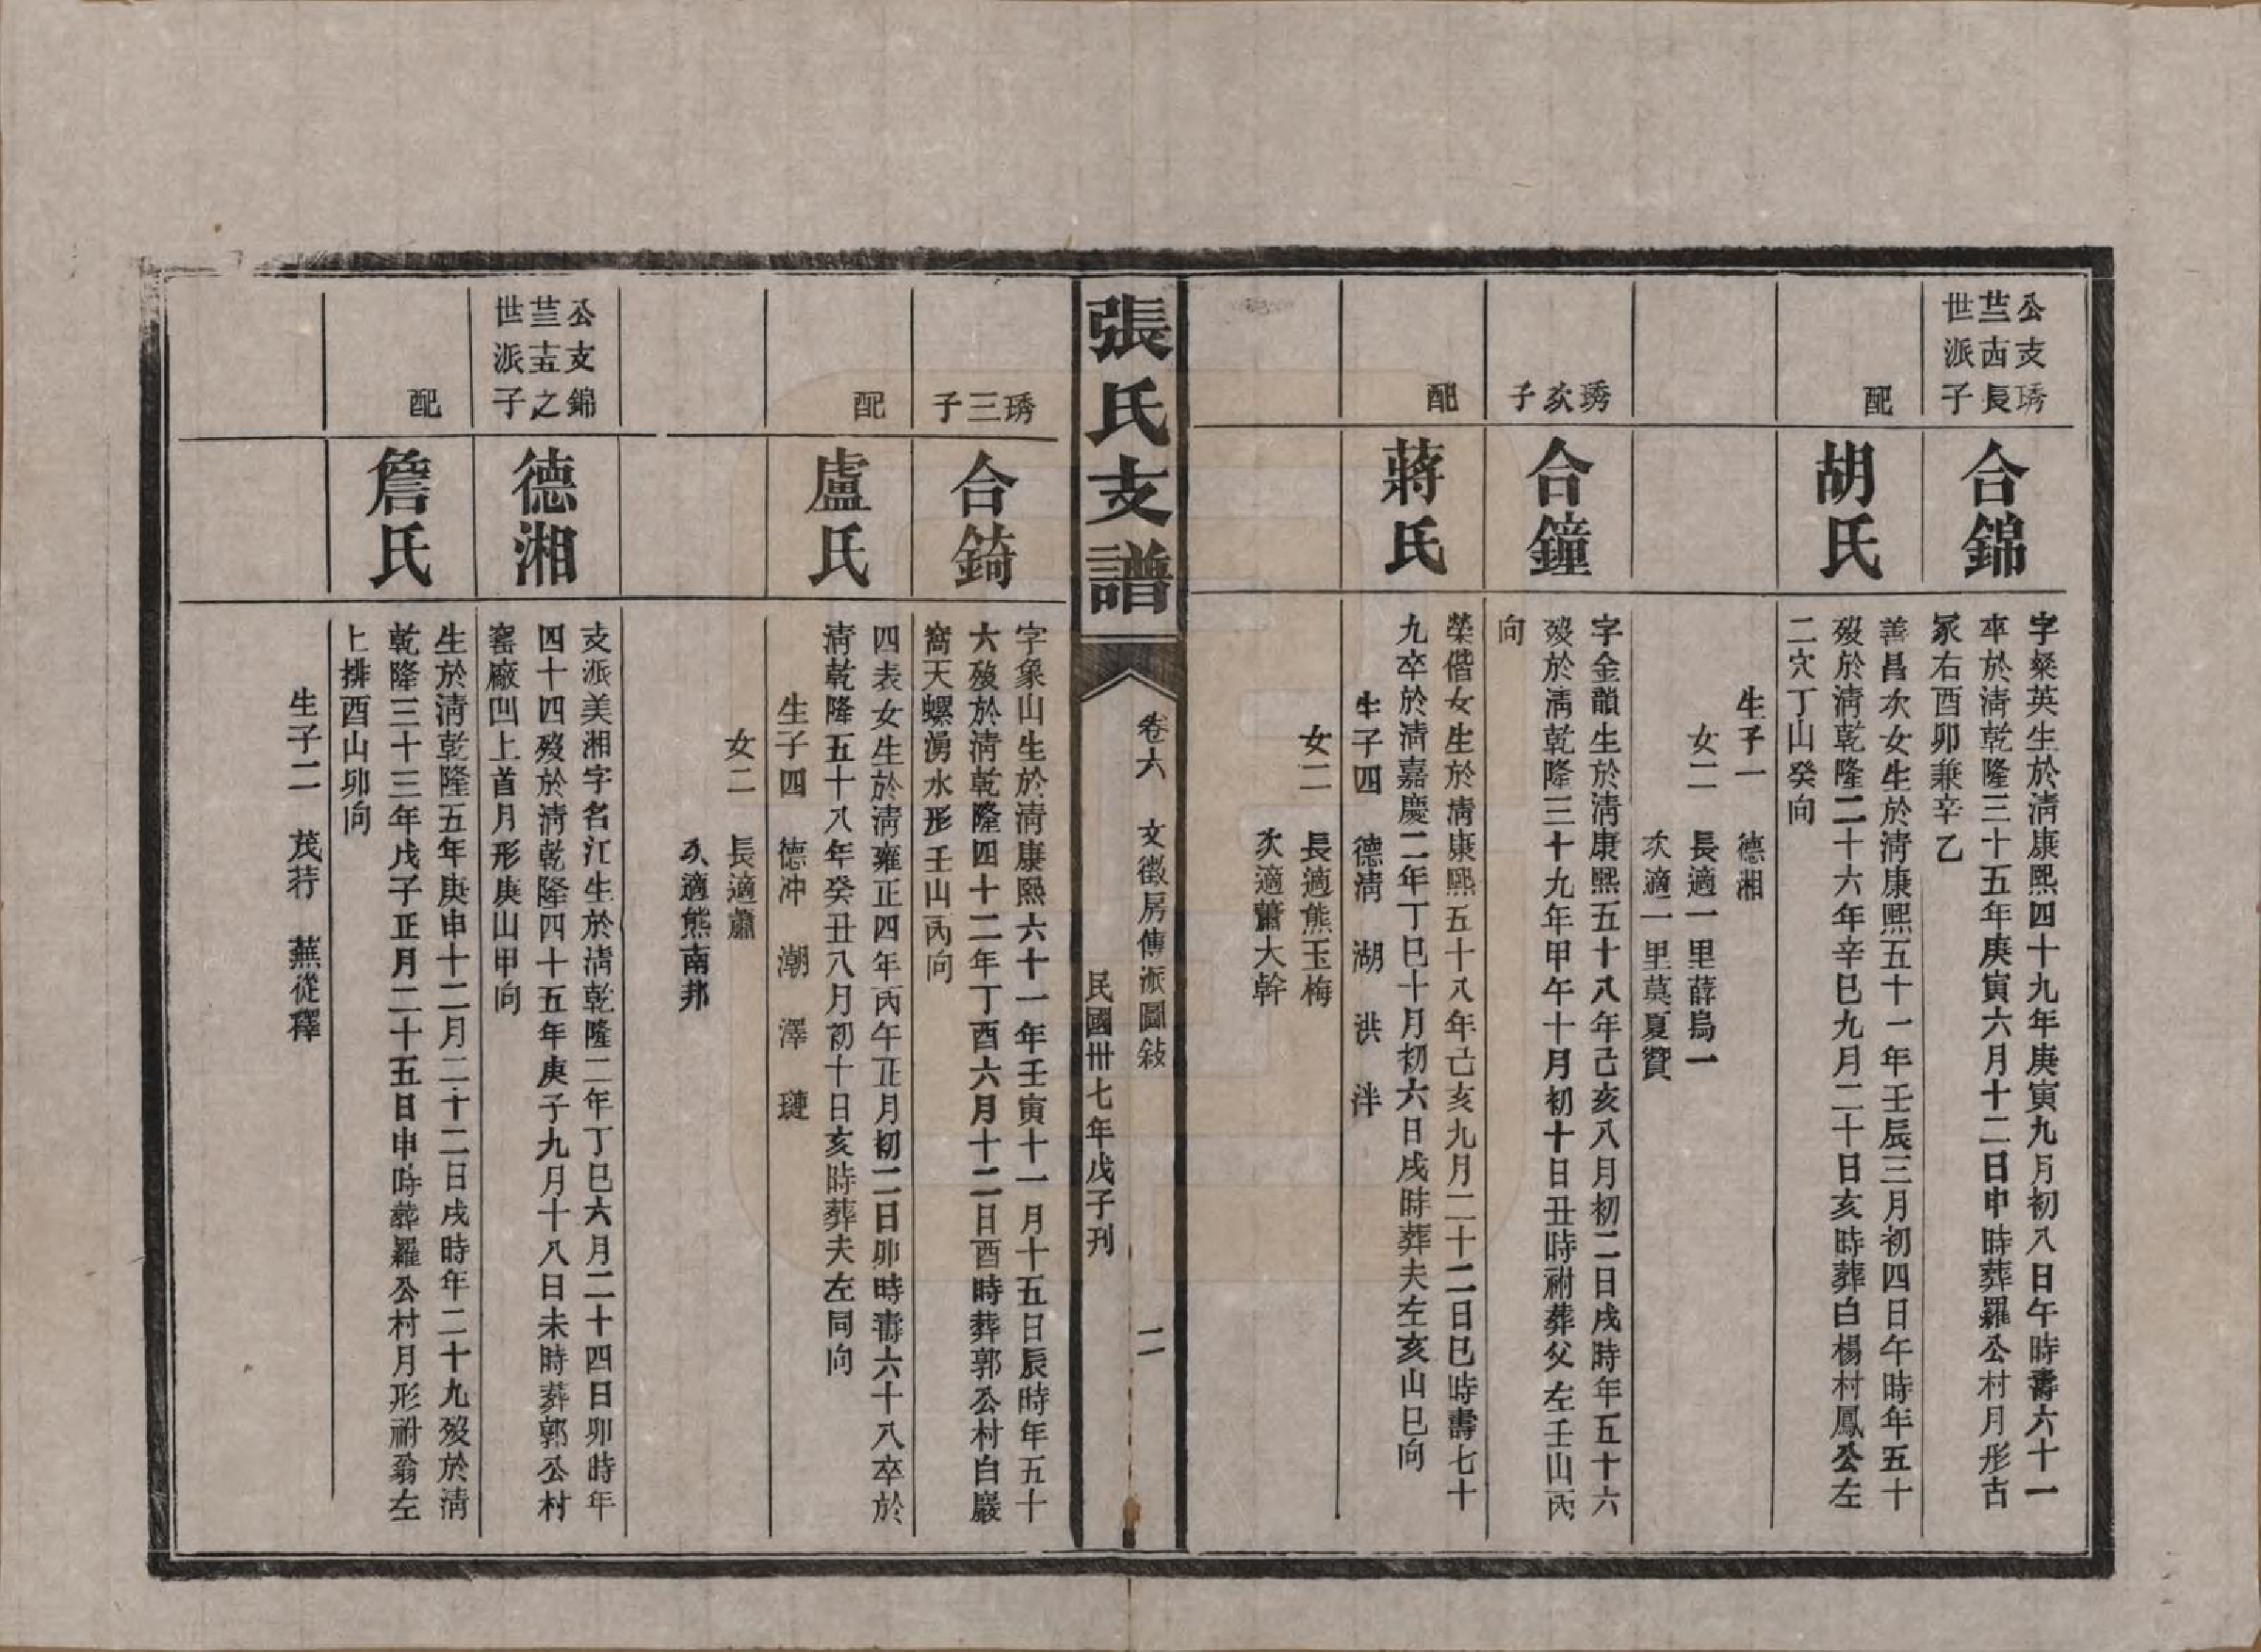 公支琇
廿四長
世派子
合錦
字燊英生於清康熙四十九年庚寅九月初八日午時壽六十一
卒於清乾隆三十五年庚寅六月十二日申時葬羅公村月形古
冢右酉卯兼辛乙
配
胡氏
善昌次女生於清康熙五十一年壬辰三月初四日午時年五十
歿於清乾隆二十六年辛巳九月二十日亥時葬白楊村鳳公左
二穴丁山癸向
生子一　德湘
女二　長適一里薛烏一
次適一里莫夏寶
琇次子
合鐘
字金韻生於清康熙五十八年己亥八月初二日戌時年五十六
歿於清乾隆三十九年甲午十月初十日丑時祔葬父左壬山丙
向
配
蔣氏
榮偕女生於清康熙五十八年己亥九月二十二日巳時壽七十
九卒於清嘉慶二年丁巳十月初六日戌時葬夫左亥山巳向
生子四　德清　湖　洪　泮
女二　長適熊玉梅
次適蕭大幹
張氏支譜
卷六　文徵房傳派圖敍　二
民國卅七年戊子刊
琇三子
合錡
字象山生於清康熙六十一年壬寅十一月十五日辰時年五十
六歿於清乾隆四十二年丁酉六月十二日酉時葬郭公村白巖
窩天螺湧水形壬山丙向
配
盧氏
四表女生於清雍正四年丙午正月初二日卯時壽六十八卒於
清乾隆五十八年癸丑八月初十日亥時葬夫左同向
生子四　德冲　潮　澤　璉
女二　長適蕭
次適熊南邦
公支錦
廿五之
世派子
德湘
支派美湘字名江生於清乾隆二年丁巳六月二十四日卯時年
四十四歿於清乾隆四十五年庚子九月十八日未時葬郭公村
窰廠凹上首月形庚山甲向
配
詹氏
生於清乾隆五年庚申十二月二十二日戌時年二十九歿於清
乾隆三十三年戊子正月二十五日申時葬羅公村月形祔翁左
上排酉山卯向
生子二　茂荇　蕪從釋